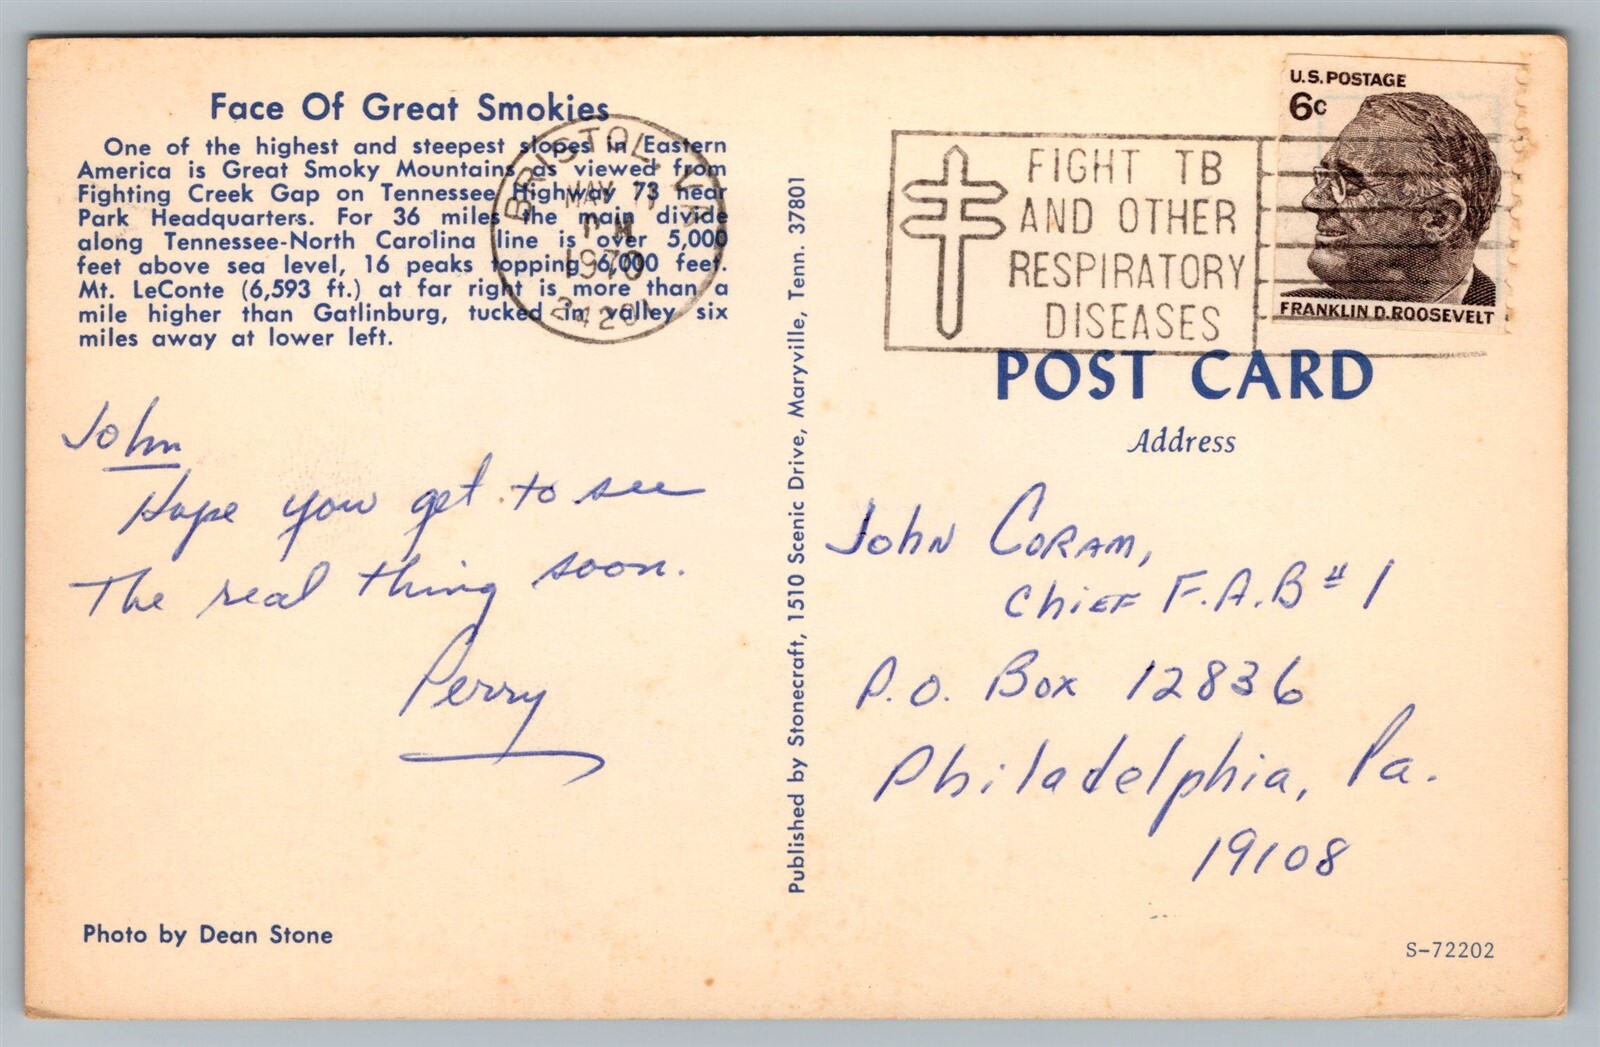 Face Of Great Smokies
One of the highest and steepest slopes in Eastern
America is Great Smoky Mountains as viewed from
Fighting Creek Gap on Tennessee Highway 73 near
Park Headquarters. For 36 miles the main divide
along Tennessee-North Carolina line is over 5,000
feet above sea level, 16 peaks topping 6,000 feet.
Mt. LeConte (6,593 ft.) at far right is more than a
mile higher than Gatlinburg, tucked in valley six
miles away at lower left.
BRISTOL, VA
MAY
1970
24201
John
Hope you get to see
The real thing soon.
Perry
Photo by Dean Stone
Published by Stonecraft, 1510 Scenic Drive, Maryville, Tenn. 37801
FIGHT TB
AND OTHER
RESPIRATORY
DISEASES
U.S. POSTAGE
6c
FRANKLIN D. ROOSEVELT
POST CARD
Address
John Coram,
Chief F.A.B # 1
P.O. Box 12836
Philadelphia, Pa.
19108
S-72202